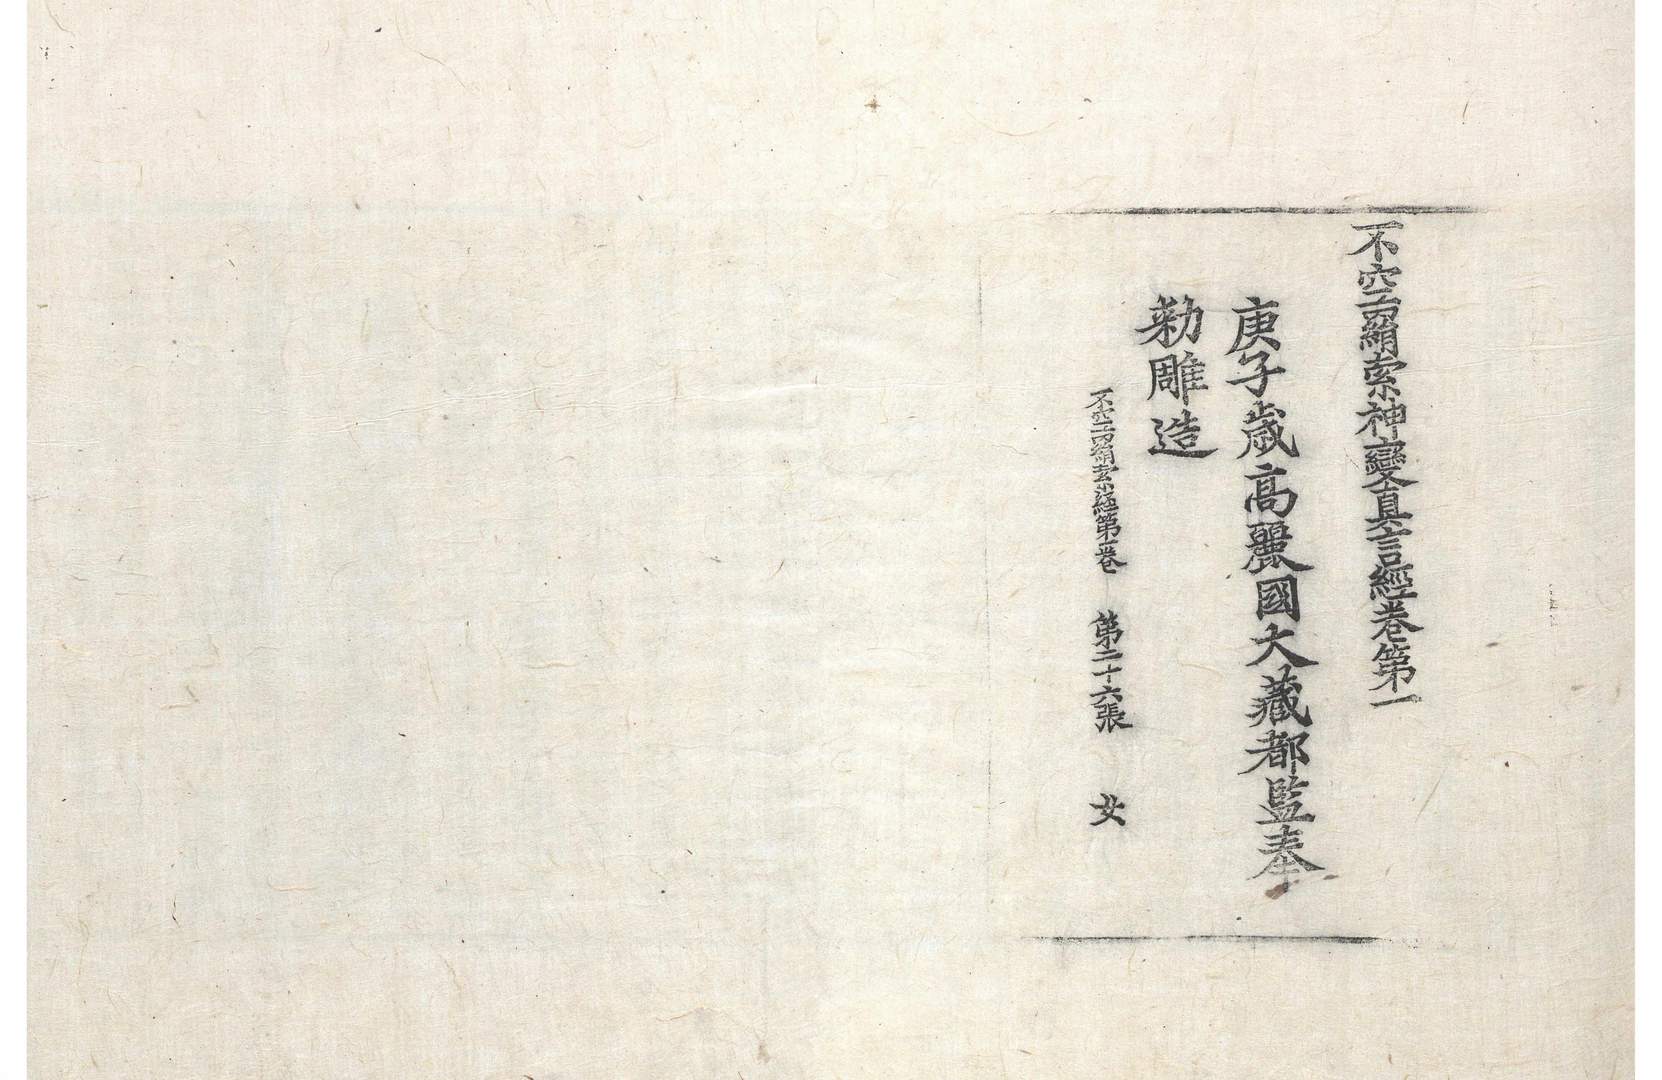 不空羂索神變真言經卷第一
庚子歲高麗國大藏都監奉
勅雕造
不空羂索經第一卷　第二十六張　女